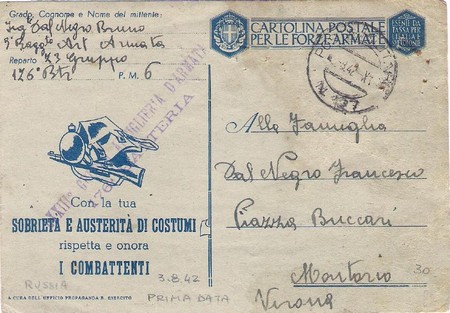 Grado, Cognome e Nome del mittente:
Dal Negro Bruno
9° Ragg.to Art. Armata
Reparto 73 Gruppo
176° Btr. P. M. 6
CARTOLINA POSTALE
PER LE FORZE ARMATE
ESENTE DA
TASSA PER
ITALIA E
N. 127
ARTIGLIERIA D'ARMATA
BATTERIA
Alla Famiglia
Dal Negro Francesco
Piazza Buccari
Montorio
Verona
30
Con la tua
SOBRIETÀ E AUSTERITÀ DI COSTUMI
rispetta e onora
I COMBATTENTI
RUSSIA
3.8.42
PRIMA DATA
A CURA DELL'UFFICIO PROPAGANDA R. ESERCITO